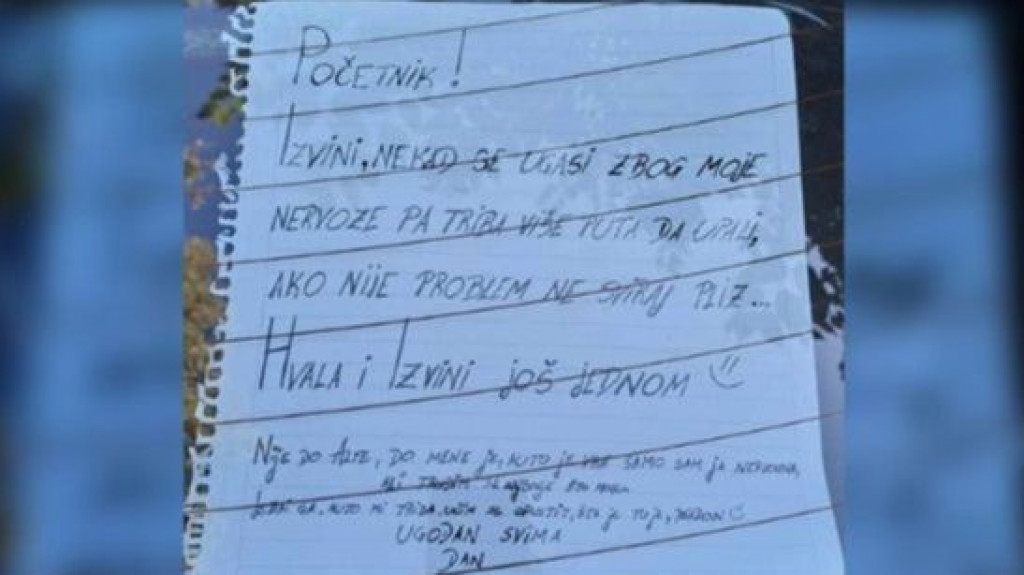 POČETNIK!
IZVINI, NEKAD SE UGASI ZBOG MOJE
NERVOZE PA TRIBA VIŠE PUTA DA UPALI,
AKO NIJE PROBLEM NE SVIRAJ PLIZ...
HVALA I IZVINI JOŠ JEDNOM
NIJE DO AUTE, DO MENE JE, AUTO JE SAMO SAM JA NERVOZNA,
SE NAJBOLJE
AUTO MI TRIBA, ŠTA JE TU JE, PARDON
UGODAN SVIMA
DAN